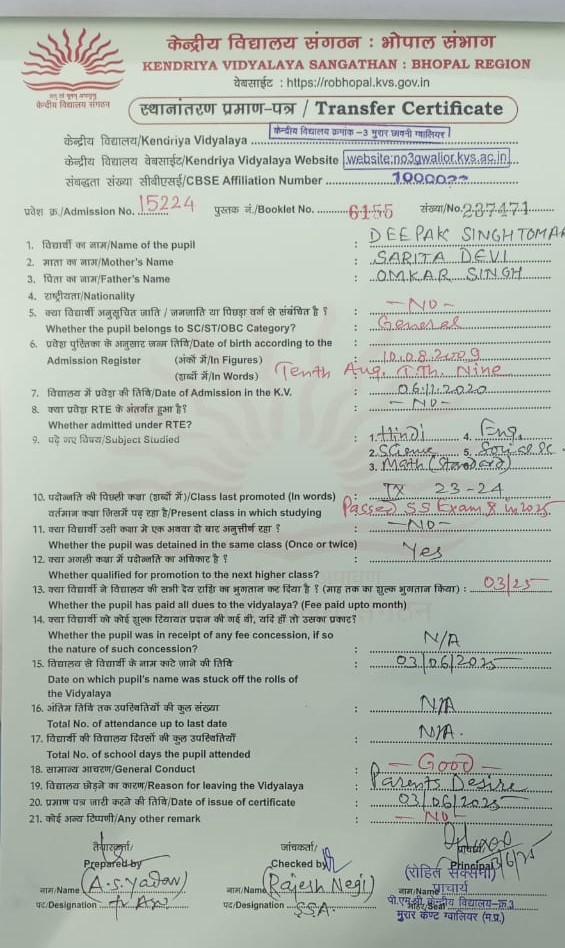 केन्द्रीय विद्यालय संगठन : भोपाल संभाग
KENDRIYA VIDYALAYA SANGATHAN : BHOPAL REGION
वेबसाईट : https://robhopal.kvs.gov.in
केन्द्रीय विद्यालय संगठन
स्थानांतरण प्रमाण-पत्र / Transfer Certificate
केन्द्रीय विद्यालय/Kendriya Vidyalaya केन्द्रीय विद्यालय क्रमांक -3 मुरार छावनी ग्वालियर
केन्द्रीय विद्यालय वेबसाईट/Kendriya Vidyalaya Website website:no3gwalior.kvs.ac.in
संबद्धता संख्या सीबीएसई/CBSE Affiliation Number
प्रवेश क्र./Admission No. 15224 पुस्तक नं./Booklet No. 6155 संख्या/No. 237471
1. विद्यार्थी का नाम/Name of the pupil : DEEPAK SINGH TOMAR
2. माता का नाम/Mother's Name : SARITA DEVI
3. पिता का नाम/Father's Name : OMKAR SINGH
4. राष्ट्रीयता/Nationality :
5. क्या विद्यार्थी अनुसूचित जाति / जनजाति या पिछड़ा वर्ग से संबंधित है ? : - NO -
Whether the pupil belongs to SC/ST/OBC Category? : General
6. प्रवेश पुस्तिका के अनुसार जन्म तिथि/Date of birth according to the
Admission Register (अंकों में/In Figures) : 10.08.2009
(शब्दों में/In Words) Tenth Aug. T.Th. Nine
7. विद्यालय में प्रवेश की तिथि/Date of Admission in the K.V. : 06.12.2020
8. क्या प्रवेश RTE के अंतर्गत हुआ है? : - NO -
Whether admitted under RTE?
9. पढ़े गए विषय/Subject Studied : 1. Hindi 4. Eng.
2. Science 5. Social Sc.
3. Math (Standard)
10. पदोन्नति की पिछली कक्षा (शब्दों में)/Class last promoted (In words) : IX 23-24
वर्तमान कक्षा जिसमें पढ़ रहा है/Present class in which studying Passed SS Exam in 2025
11. क्या विद्यार्थी उसी कक्षा में एक अथवा दो बार अनुत्तीर्ण रहा ? : - NO -
Whether the pupil was detained in the same class (Once or twice)
12. क्या अगली कक्षा में पदोन्नति का अधिकार है ? : Yes
Whether qualified for promotion to the next higher class?
13. क्या विद्यार्थी ने विद्यालय की सभी देय राशि का भुगतान कर दिया है ? (माह तक का शुल्क भुगतान किया) : 03/25
Whether the pupil has paid all dues to the vidyalaya? (Fee paid upto month)
14. क्या विद्यार्थी को कोई शुल्क रियायत प्रदान की गई थी, यदि हाँ तो उसका प्रकार?
Whether the pupil was in receipt of any fee concession, if so
the nature of such concession? : N/A
15. विद्यालय से विद्यार्थी के नाम काटे जाने की तिथि : 03/06/2025
Date on which pupil's name was stuck off the rolls of
the Vidyalaya
16. अंतिम तिथि तक उपस्थितियों की कुल संख्या : N/A
Total No. of attendance up to last date
17. विद्यार्थी की विद्यालय दिवसों की कुल उपस्थितियाँ : N/A.
Total No. of school days the pupil attended
18. सामान्य आचरण/General Conduct : - Good -
19. विद्यालय छोड़ने का कारण/Reason for leaving the Vidyalaya : Parents Desire
20. प्रमाण पत्र जारी करने की तिथि/Date of issue of certificate : 03/06/2025
21. कोई अन्य टिप्पणी/Any other remark : - NO -
तैयारकर्ता/ जांचकर्ता/ प्राचार्य/
Prepared by Checked by Principal 3/6/25
(रोहित सक्सेना)
नाम/Name (A.S. Yadav) नाम/Name (Rajesh Negi) नाम/Name प्राचार्य
पद/Designation पद/Designation SSA. मोहर/Seal पी.एम.श्री केन्द्रीय विद्यालय-क्र.3
मुरार कैण्ट ग्वालियर (म.प्र.)